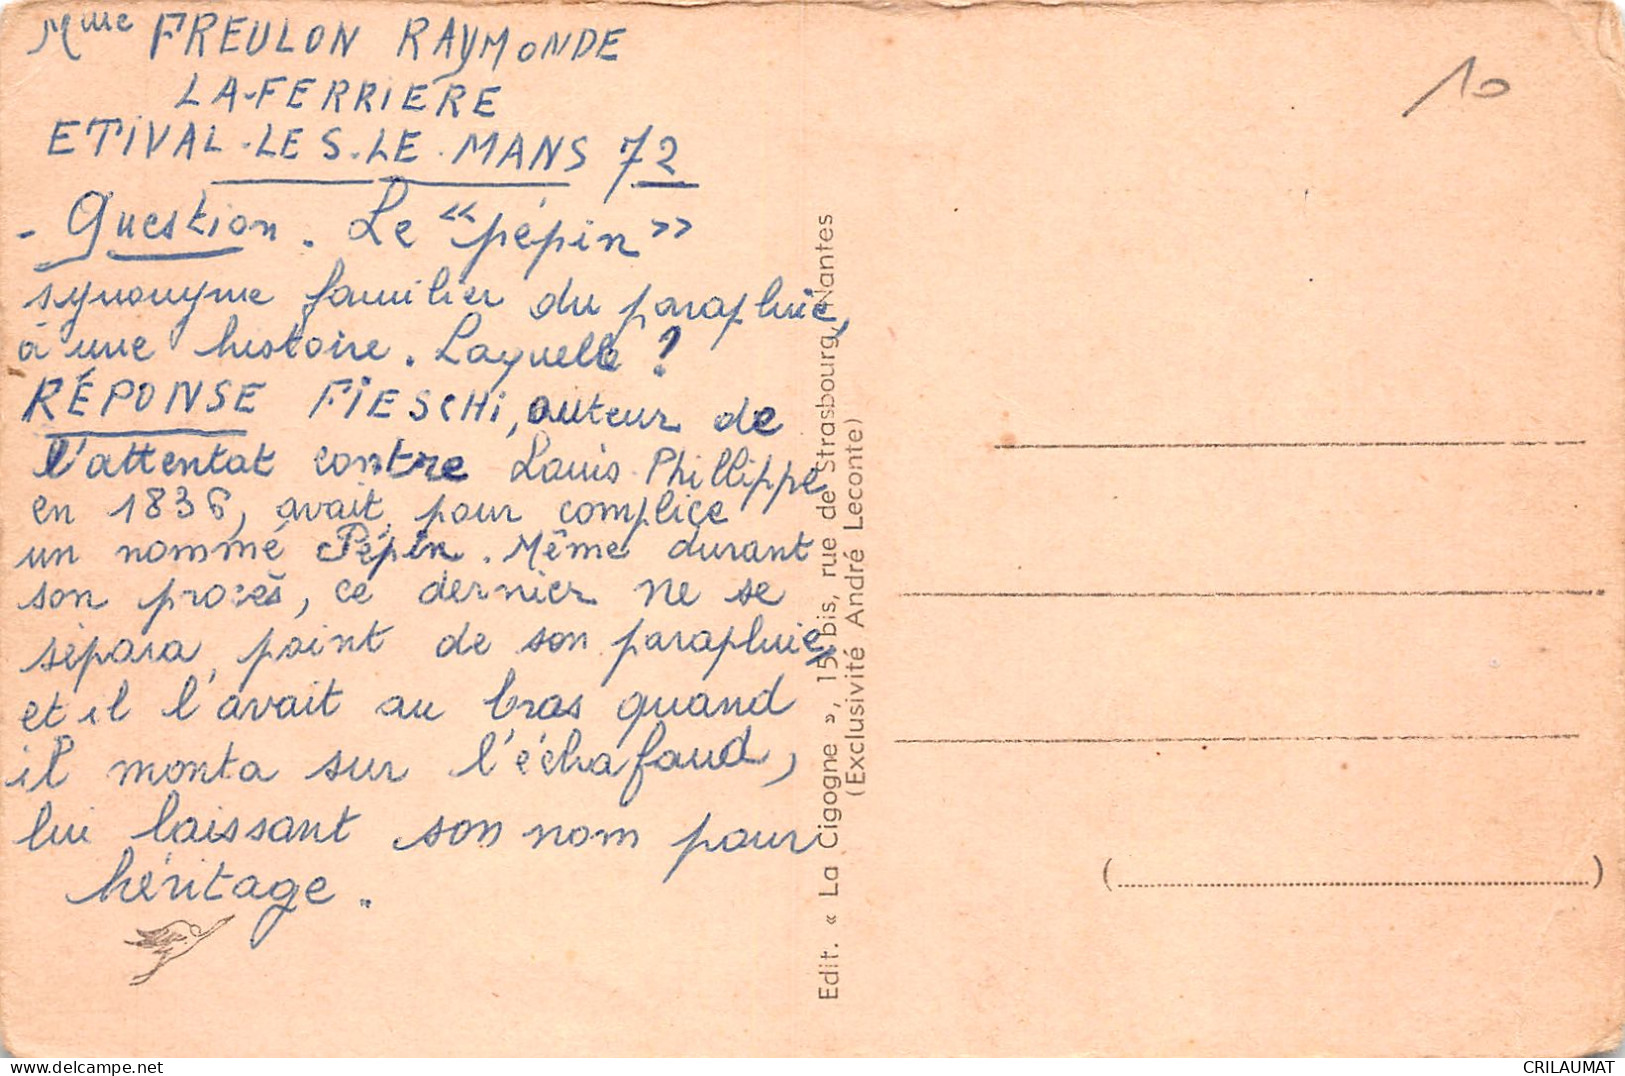 Mme FREULON RAYMONDE
LA-FERRIERE
ETIVAL-LES-LE-MANS 72
- Question. Le "pépin"
synonyme familier du parapluie,
à une histoire. Laquelle ?
RÉPONSE FIESCHI, auteur de
l'attentat contre Louis-Phillippe
en 1836, avait pour complice
un nommé Pépin. Même durant
son procès, ce dernier ne se
sépara point de son parapluie,
et il l'avait au bras quand
il monta sur l'échafaud,
lui laissant son nom pour
héritage.
Edit. « La Cigogne », 15 bis, rue de Strasbourg, Nantes
(Exclusivité André Leconte)
10
CRILAUMAT